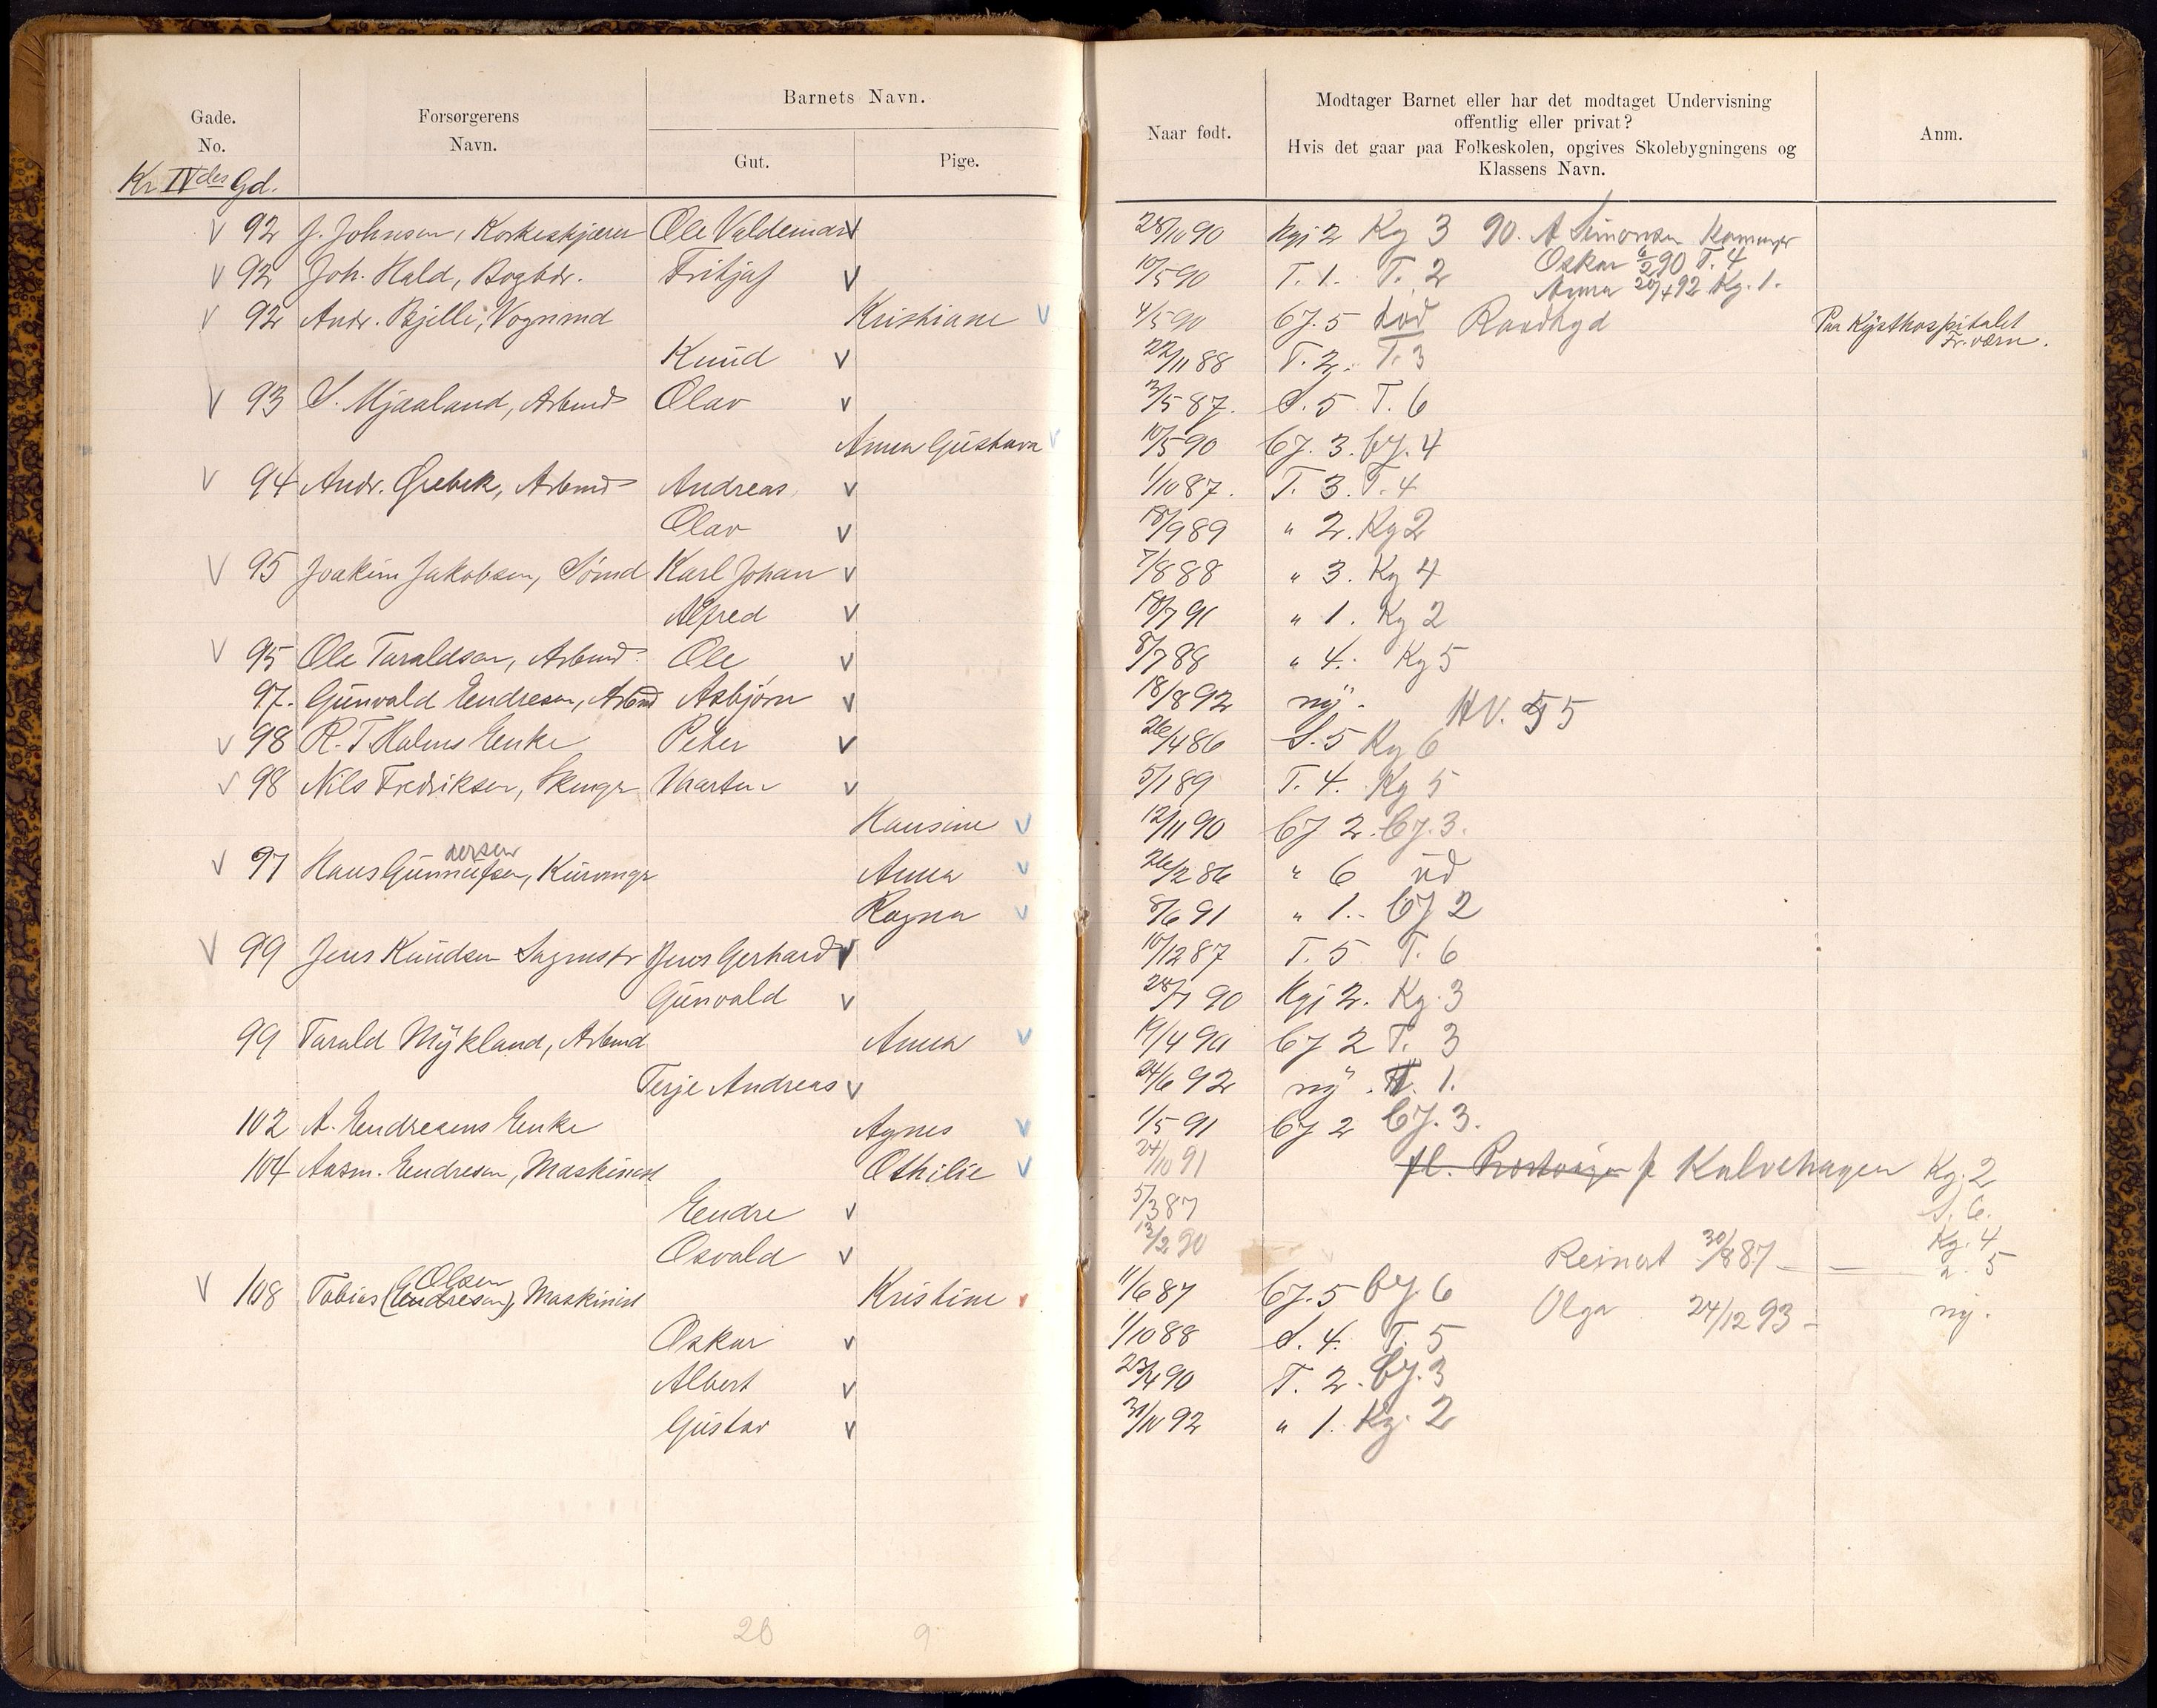 Gade.
No.
Forsørgerens
Navn.
Barnets Navn.
Gut.
Pige.
Naar født.
Modtager Barnet eller har det modtaget Undervisning
offentlig eller privat?
Hvis det gaar paa Folkeskolen, opgives Skolebygningens og
Klassens Navn.
Anm.
Kr IVdes Gd.
V 92 J. Johnsen, Korkeskjærer Ole Valdemar V 28/10 90 Kgi 2 Kg 3 90. A Simonsen
Oskar 6/2 90 T. 4
V 92 Joh. Hald, Bogbdr. Fritjaf V 10/5 90 T. 1. T. 2
Anna 20/4 92 Kg. 1.
V 92 Andr. Bjelli, Vognmd Kristiane V 4/5 90 Cf. 5 død Paa Kysthospitalet
Fr.værn.
Knud V 22/11 88 T. 2. T. 3
V 93 S. Mjaaland, Arbmd Olav V 3/5 87. S. 5 T. 6
Anna Gustava V 10/5 90 Cf. 3. Cf. 4
V 94 Andr. Grebek, Arbmd Andreas V 1/10 87. T. 3. T. 4
Olav V 18/9 89 " 2. Kg 2
V 95 Joakim Jakobsen, Sømd Karl Johan V 7/8 88 " 3. Kg 4
Alfred V 18/7 91 " 1. Kg 2
V 95 Ole Taraldsen, Arbmd. Ole V 8/7 88 " 4. Kg 5
97. Gunvald Endresen, Arbmd Asbjørn V 18/8 92 ny. HV. 5
V 98 R. T Halms Enke Peter V 26/4 86 S. 5 Kg 6
V 98 Nils Fredriksen, Maarten V 5/1 89 T. 4. Kg 5
Hansine V 12/11 90 Cf 2. Cf. 3.
dersen
V 97 Hans Gunnufsen, Kurvmgr Anna V 26/2 86 " 6 ud
Ragna V 8/6 91 " 1. Cf 2
V 99 Jens Knudsen Sagmstr Jens Gerhard V 10/12 87 T. 5 T. 6
Gunvald V 28/7 90 Kgi 2. Kg. 3
99 Tarald Mykland, Arbmd Anna V 19/4 90 Cf 2 T. 3
Terje Andreas V 24/6 92 ny. T. 1.
102 A. Endresens Enke Agnes V 1/5 91 Cf 2 Cf. 3.
104 Aasm. Endresen, Maskinist Othilie V 24/10 91 fl. Kalvehagen Kg. 2
Endre V 5/3 87 S. 6.
Osvald V 13/2 90 Kg. 4
Reinert 30/8 87 — — 5
Olsen
V 108 Tobias (Endresen), Maskinist Kristine V 11/6 87 Cf. 5 Cf. 6
Olga 24/12 93 - ny.
Oskar V 1/10 88 S. 4. T. 5
Albert V 23/4 90 T. 2. Cf. 3
Gustav V 31/10 92 " 1. Kg. 2
20 9